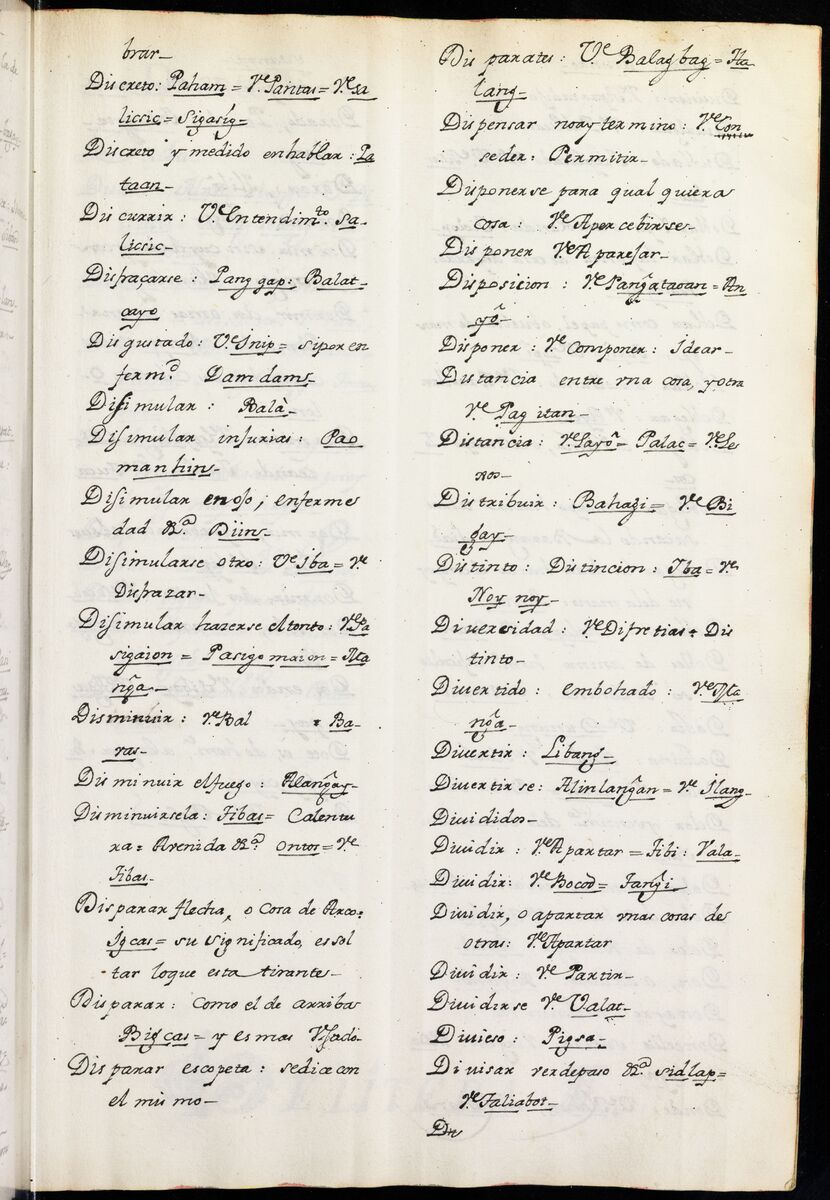 brar-
Discreto: Paham= Ve Pantas= Ve sa
licsic= sigasig-
Discreto y medido en hablar: Ta
taan-
Discurrir: Ve Entendimto. sa-
licsic-
Disfraçarse: Pang gap: Balat-
cayo
Disgustado: Ve Inip= si por en
fermd. Damdams-
Disimular: Balà-
Disimular injurias: Pao
manhin-
Disimular enojo; enferme
dad &a. Biin-
Disimularse otro: Ve Iba= Ve
Disfrazar-
Disimular hazerse el tonto: Ve Pa
sigaion= Pasigomaion= Ma
ng̃a-
Disminuir: Ve Bal = Ba-
ras-
Disminuir el fuego:
Disminuirsela: Tibas= Calentu
ra= Avenida &a. Ontos= Ve
Tibas-
Disparar flecha, o cosa de Arco:
Igcas= su significado, es sol
tar lo que esta tirante-
Disparar: Como el de arriba
Bigcas= y es mas Usado
Disparar escopeta: se dice con
el mismo-
Disparates: Ve Balagbag= Ha
lang-
Dispensar no ay termino: Ve Con
seder: Permitir-
Disponerse para qual quiera
cosa: Ve Apercebirse-
Disponer Ve Aparejar-
Disposicion: Ve Pang̃ataoan= An
yô-
Disponer: Ve Componer: Idear-
Distancia entre vna cosa, y otra
Ve Pag itan-
Distancia: Ve Layô= Palac= Ve Le
xos-
Distribuir: Bahagi= Ve Bi
gay-
Distinto: Distincion: Iba= Ve
Noy noy-
Diversidad: Ve Difretias= Dis
tinto-
Divertido: embobado: Ve Ma
ng̃a-
Divertir: Libang-
Divertirse: Alinlang̃an= Ve Ilang-
Divididos-
Dividir: Ve Apartar= Tibi: Vala-
Dividir: Ve Bocod= Tang̃i
Dividir, o apartar vnas cosas de
otras: Ve Apartar
Dividir: Ve Partir-
Dividirse Ve Valat-
Divieso: Pigsa-
Divisar ver de paso &a. sidlap=
Ve Taliabot-